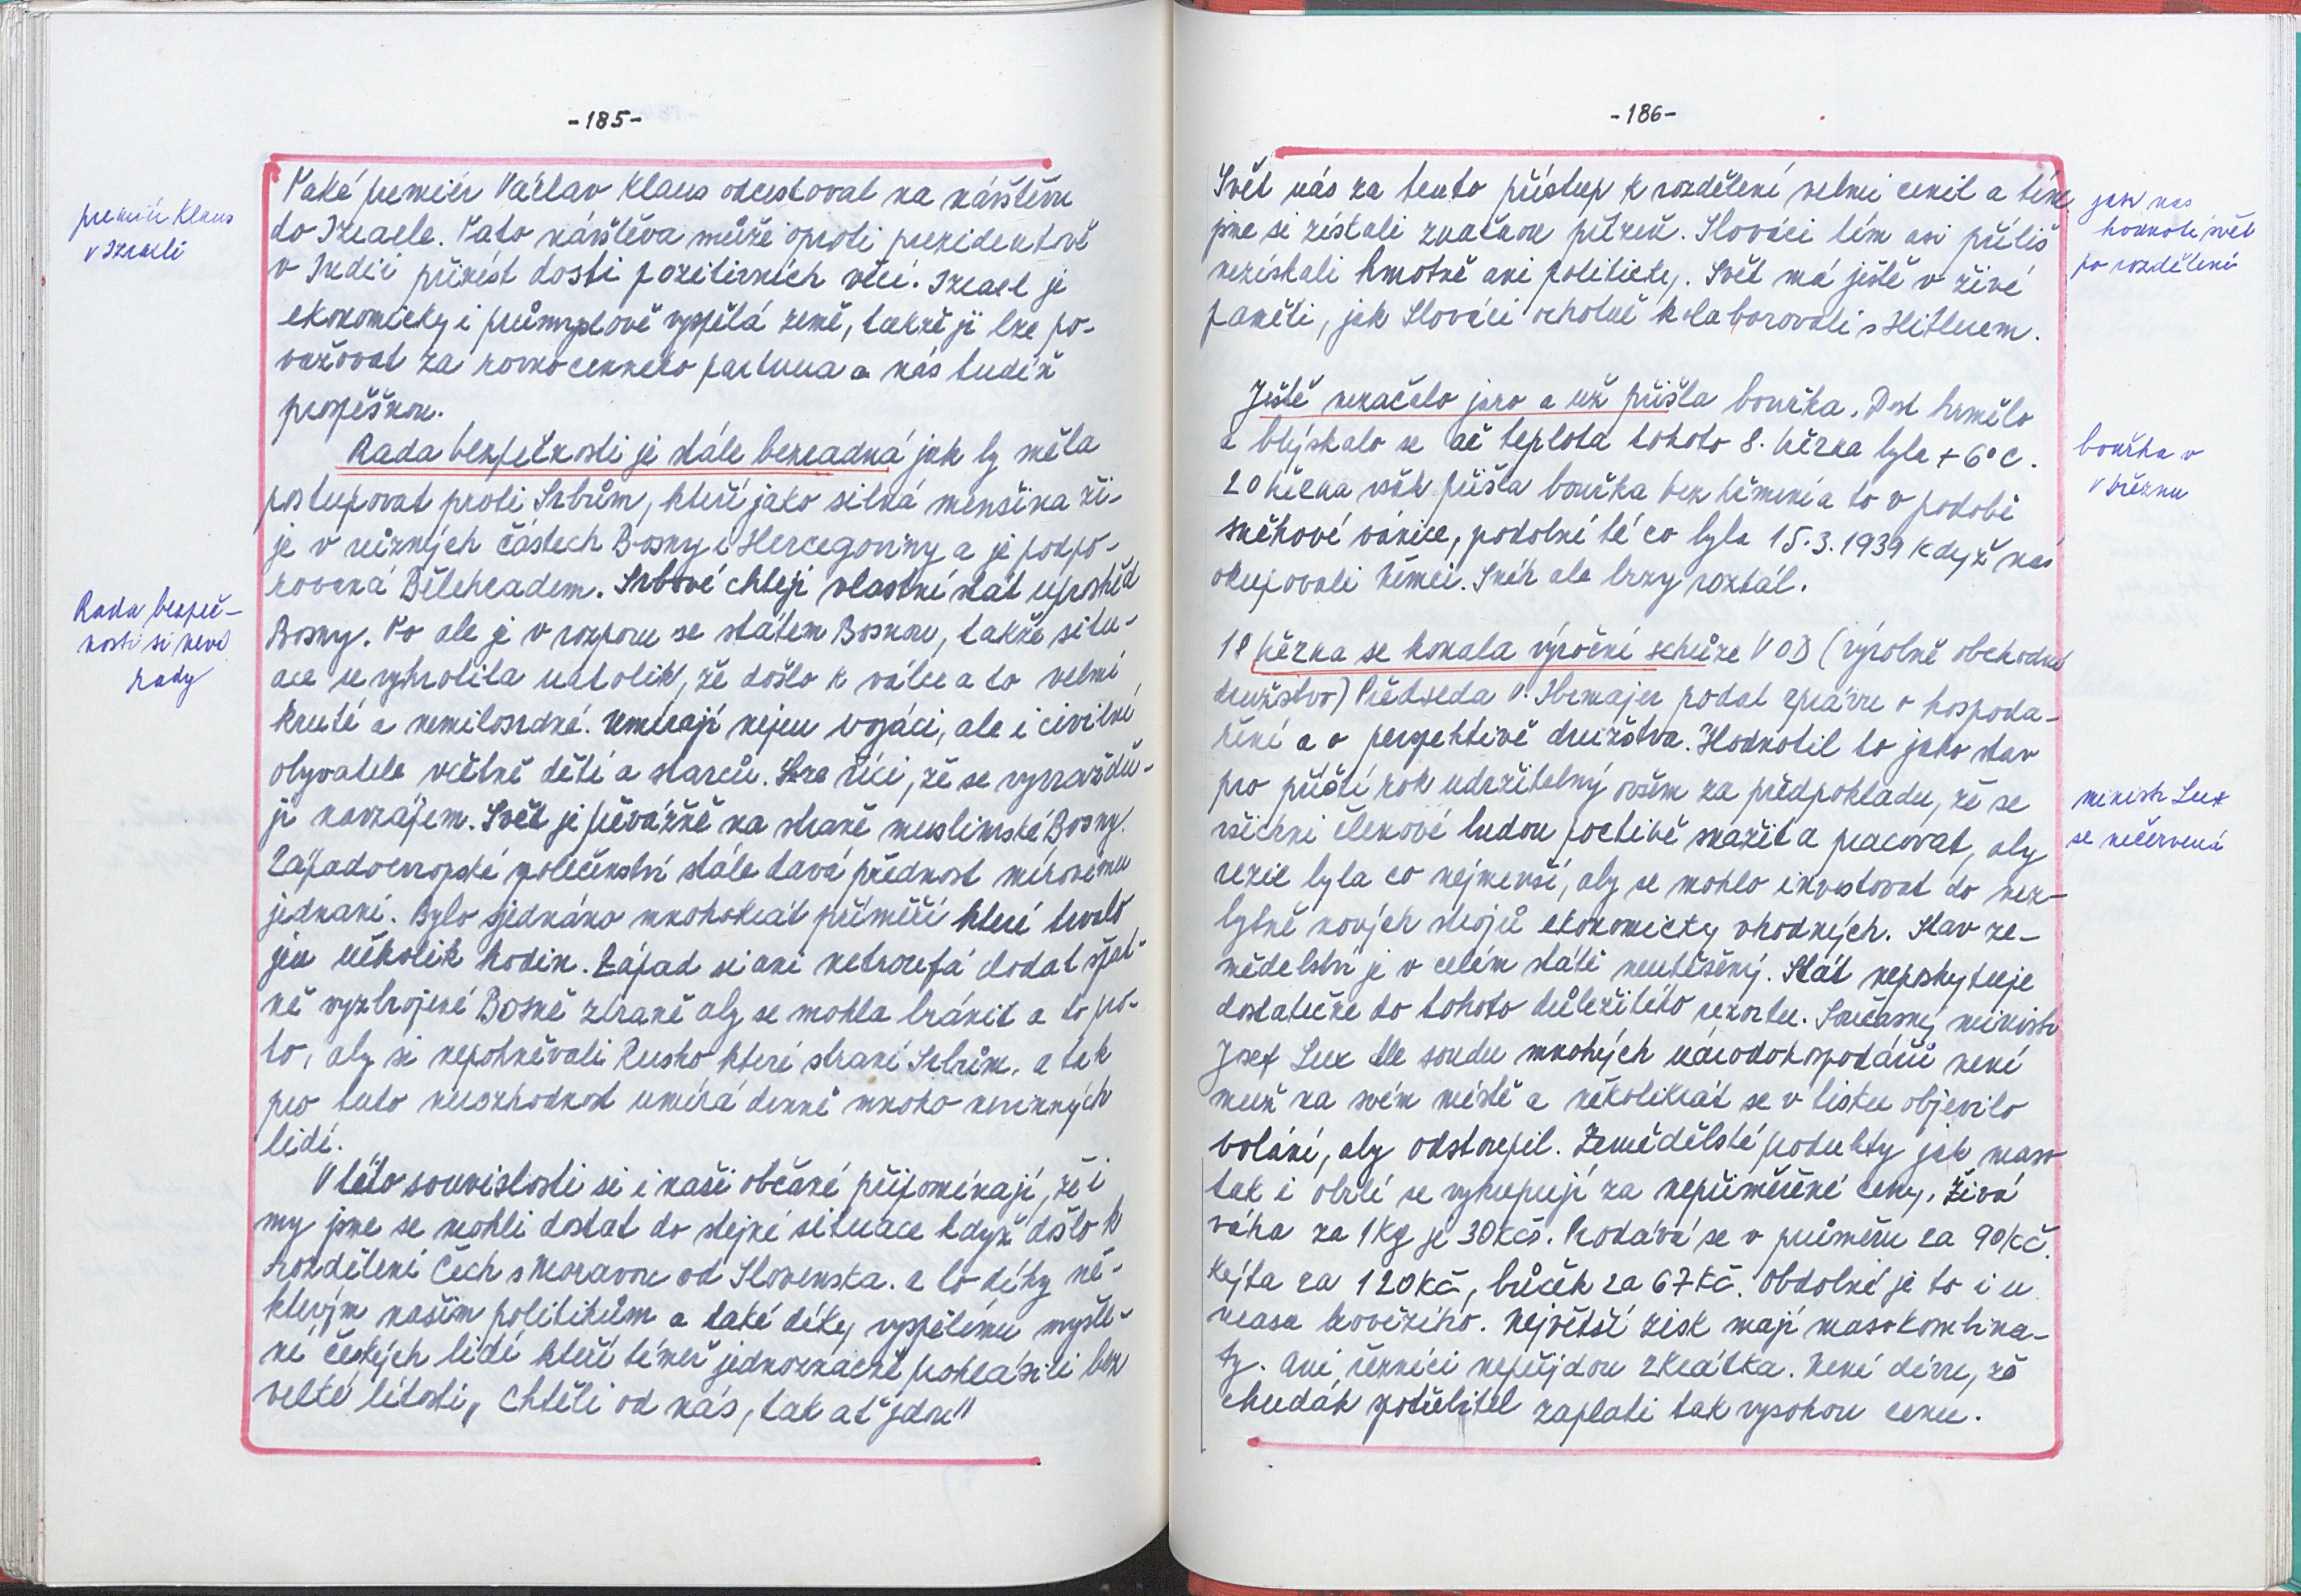 -185-
premiér Klaus
v Izraeli
Také premiér Václav Klaus odcestoval na návštěvu
do Izraele. Tato návštěva může oproti prezidentově
v Indii přinést dosti pozitivních věcí. Izrael je
ekonomicky i průmyslově vyspělá země, takže ji lze po-
važovat za rovnocenného partnera a nás tudíž
prospěšnou.
Rada bezpečnosti je stále bezradná jak by měla
postupovat proti Srbům, kteří jako silná menšina ži-
je v různých částech Bosny i Hercegoviny a je podpo-
rovaná Bělehradem. Srbové chtějí vlastní stát uprostřed
Rada bezpeč-
nosti si neví
rady
Bosny. To ale je v rozporu se státem Bosnou, takže situ-
ace se vyhrotila natolik, že došlo k válce a to velmi
kruté a nemilosrdné. Umírají nejen vojáci, ale i civilní
obyvatele včetně dětí a starců. Lze říci, že se vyvražďu-
jí navzájem. Svět je převážně na straně muslimské Bosny.
Západoevropské společenství stále dává přednost mírovému
jednání. Bylo sjednáno mnohokrát příměří které trvalo
jen několik hodin. Západ si ani netroufá dodat špat-
ně vyzbrojené Bosně zbraně aby se mohla bránit a to pro-
to, aby si nepohněvali Rusko které straní Srbům, a tak
pro tuto nerozhodnost umírá denně mnoho nevinných
lidí.
V této souvislosti si i naši občané připomínají, že i
my jsme se mohli dostat do stejné situace když došlo k
rozdělení Čech s Moravou od Slovenska. a to díky ně-
kterým našim politikům a také díky vyspělému myšle-
ní českých lidí kteří téměř jednoznačně prohlásili bez
velké lítosti „ Chtěli od nás, tak ať jdou"
-186-
Svět nás za tento přístup k rozdělení velmi cenil a tím
jsme si získali značnou přízeň. Slováci tím asi příliš
nezískali hmotně ani politicky. Svět má ještě v živé
paměti, jak Slováci ochotně kolaborovali s Hitlerem.
jak nás
hodnotí svět
po rozdělení
Ještě nezačalo jaro a už přišla bouřka. Dost hřmělo
a blýskalo se ač teplota tohoto 8. března byla + 6° C.
20 března však přišla bouřka bez hřmění a to v podobě
sněhové vánice, podobné té co byla 15.3.1939 když nás
okupovali Němci. Sníh ale brzy roztál.
bouřka v
v březnu
18 března se konala výroční schůze VOD (výrobně obchodní
družstvo) Předseda V. Hrmajer podal zprávu o hospoda-
ření a o perspektivě družstva. Hodnotil to jako stav
pro příští rok udržitelný ovšem za předpokladu, že se
všichni členové budou poctivě snažit a pracovat, aby
režie byla co nejmenší, aby se mohlo investovat do nez-
bytně nových strojů ekonomicky vhodných. Stav ze-
mědelství je v celém státě neutěšený. Stát neposkytuje
dostatečně do tohoto důležitého rezortu. Současný ministr
Josef Lux dle soudu mnohých národohospodářů není
muž na svém místě a několikrát se v tisku objevilo
volání, aby odstoupil. Zemědělské produkty jak maso
tak i obilí se vykupují za nepřiměřené ceny. Živá
váha za 1kg je 30kčs. Prodává se v průměru za 90kč.
kýta za 120kč, bůček za 67kč. Obdobné je to i u
masa hovězího. Největší zisk mají masokombiná-
ty. Ani řezníci nepřijdou zkrátka. Není divu, že
chudák spotřebitel zaplatí tak vysokou cenu.
ministr Lux
se nečervená